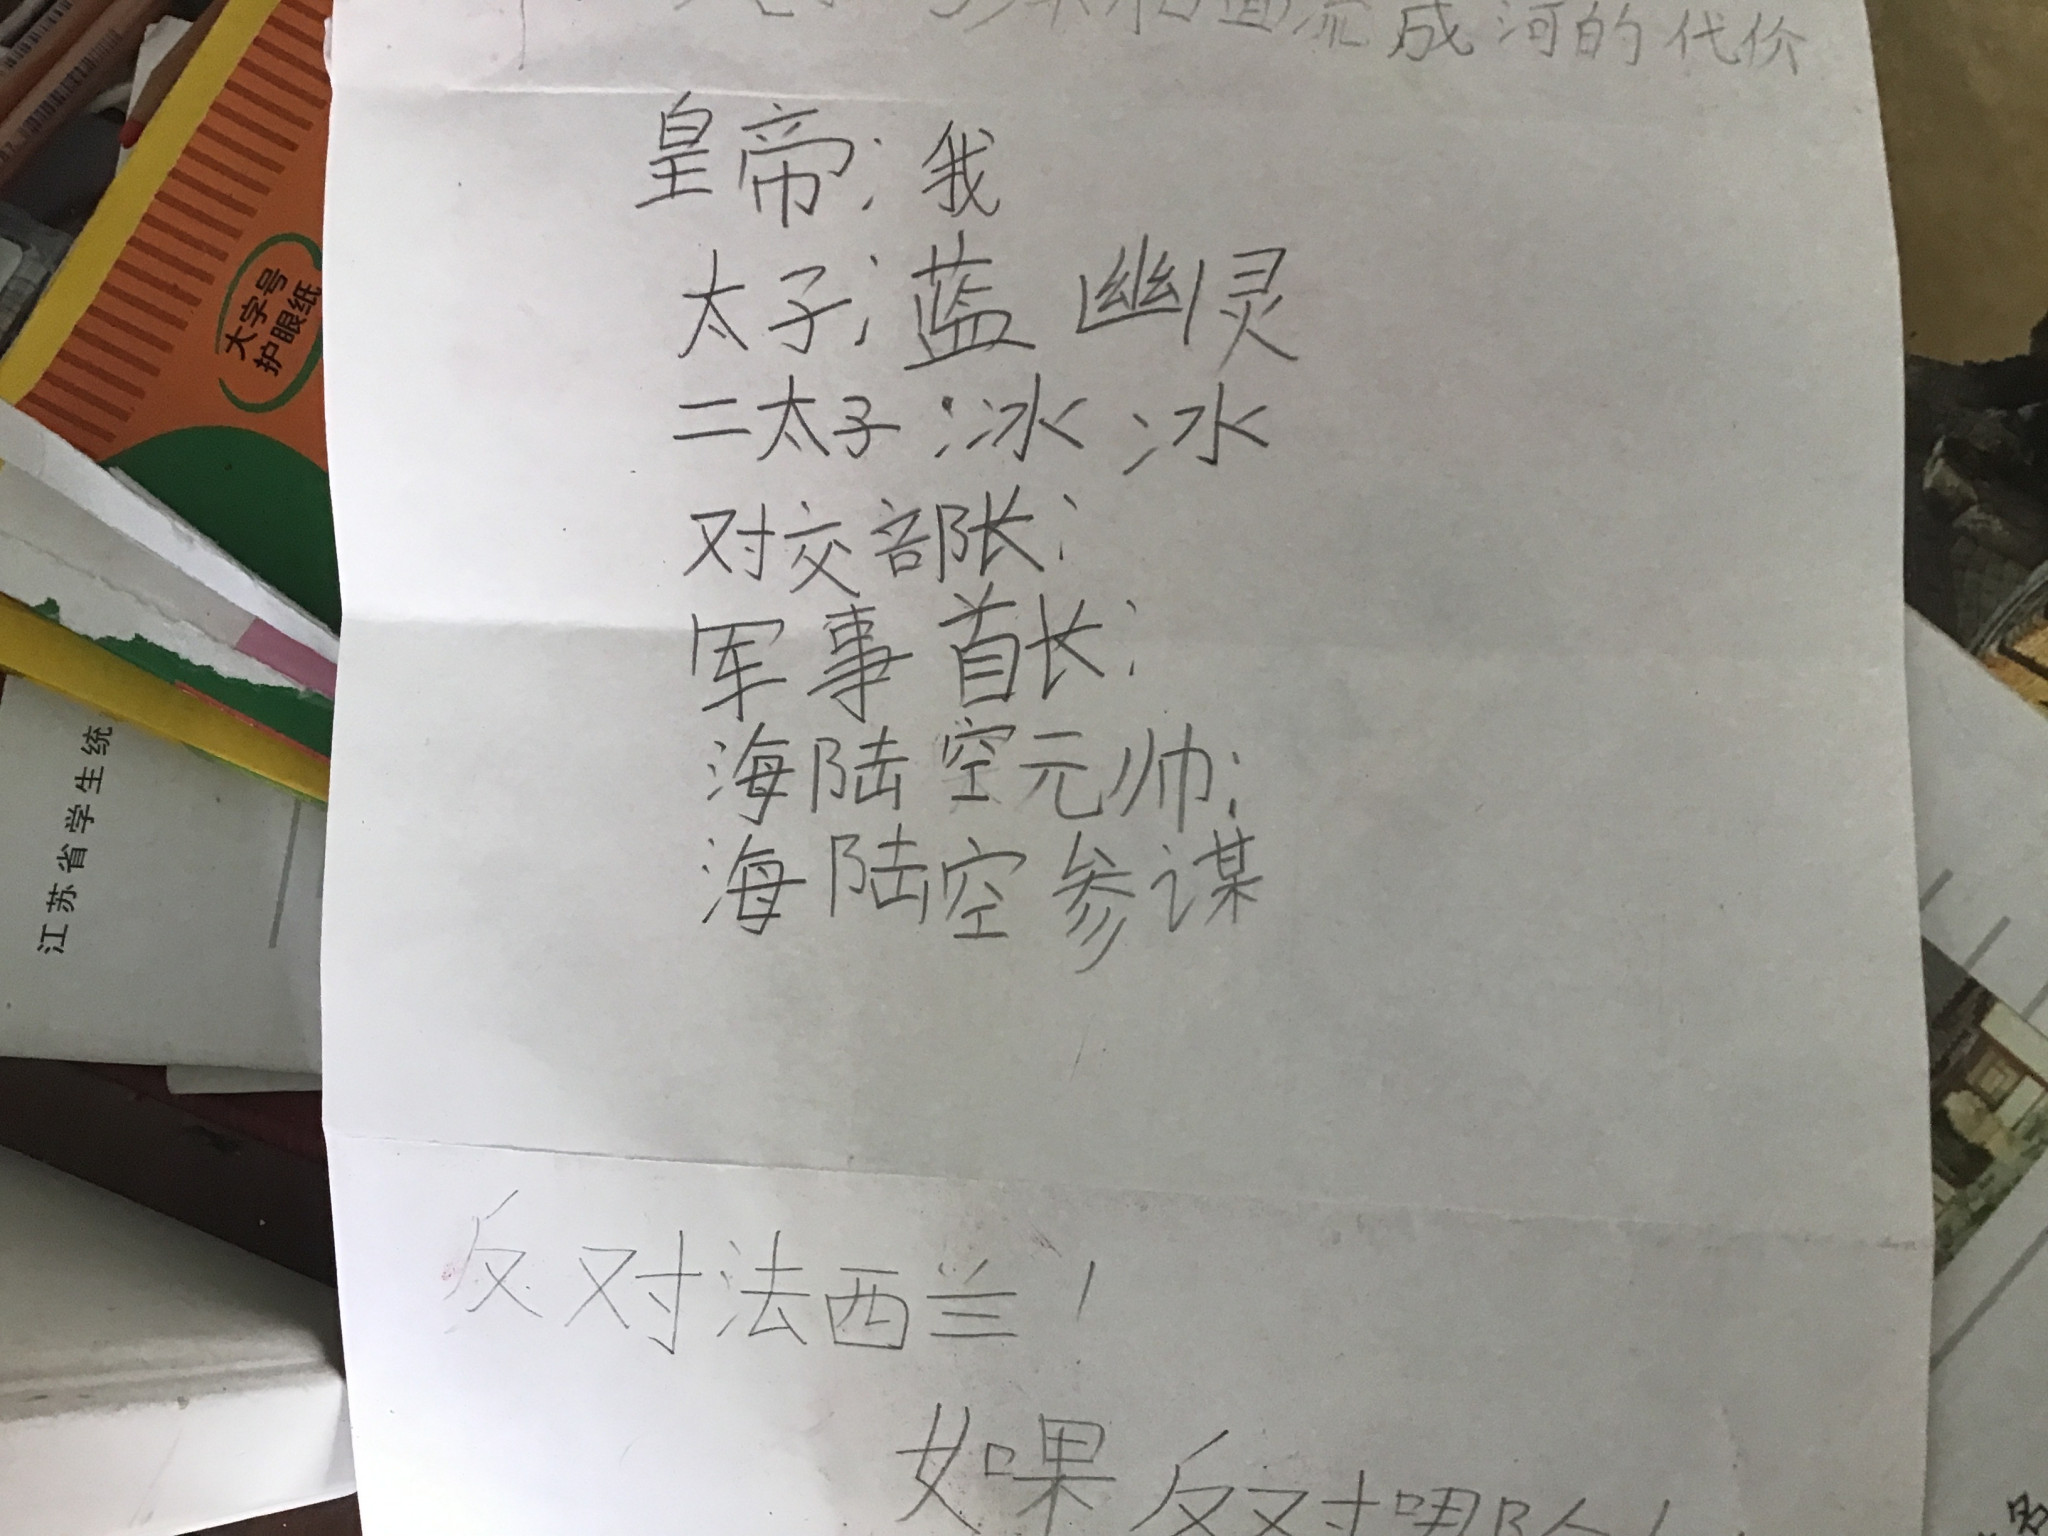 血流成河的代价
皇帝：我
太子：蓝幽灵
二太子：冰冰
对交部长：
军事首长：
海陆空元帅：
海陆空参谋
反对法西兰！
如果反对
大字号
护眼纸
江苏省学生统